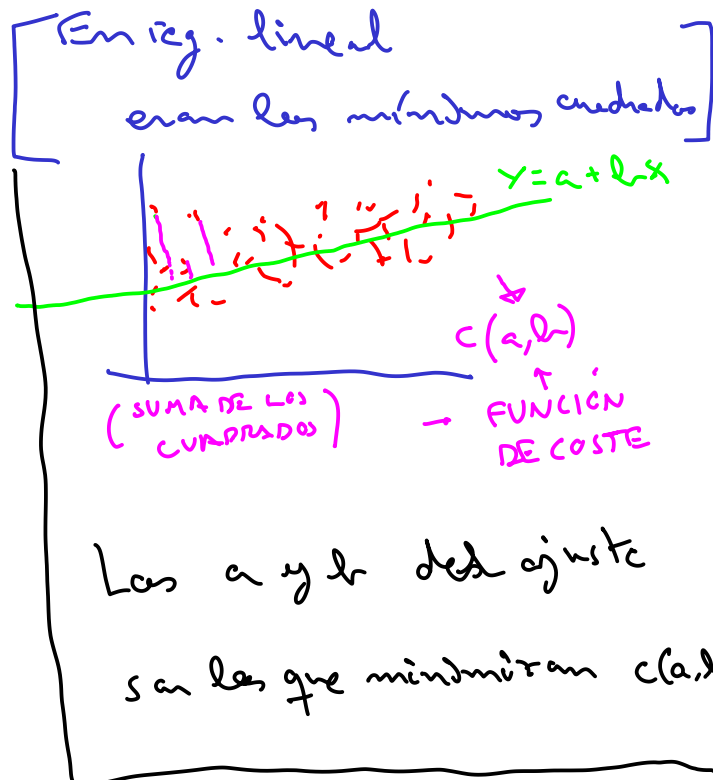 En reg. lineal
eran los mínimos cuadrados
y = a + bx
C(a,b)
(SUMA DE LOS
CUADRADOS)
→ FUNCIÓN
DE COSTE
Los a y b del ajuste
son los que minimizan C(a,b